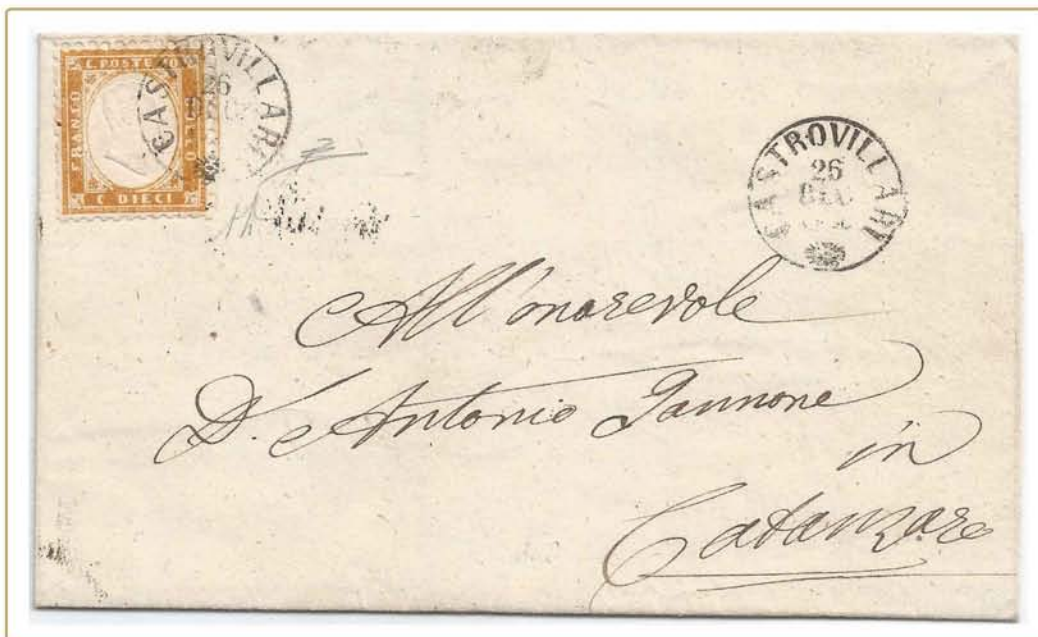 C. POSTE
FRANCO
C. DIECI
CASTROVILLARI
26
CASTROVILLARI
26
All'onorevole
D. Antonio Iannone
in
Catanzaro